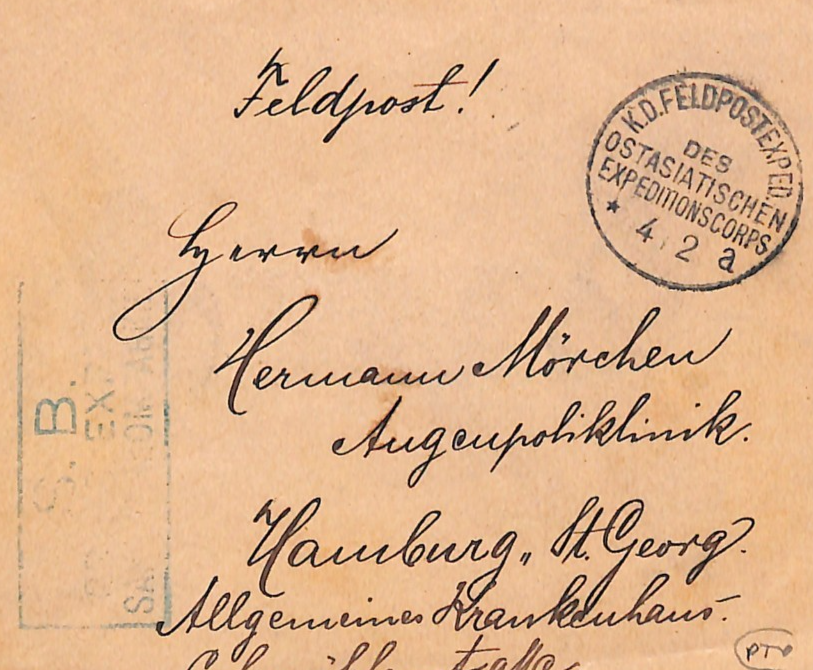 Feldpost!
K.D. FELDPOSTEXPED.
DES
OSTASIATISCHEN
EXPEDITIONSCORPS
* 4 2 a
Herrn
Hermann Mörchen
Augenpoliklinik.
Hamburg „ St. Georg.
Allgemeines Krankenhaus.
S. B.
EX.
SA